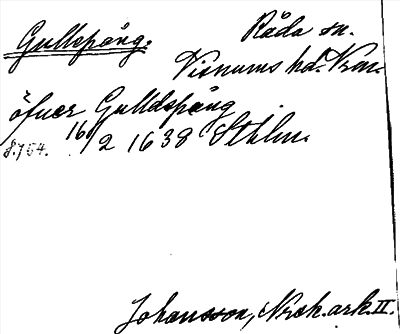 Gullspång. Råda sn.
Visnums hd. Vrml.
öfver Gulldspång
16/2 1638 Sthlm.
s. 764.
Johansson, Nrek. ark. II.